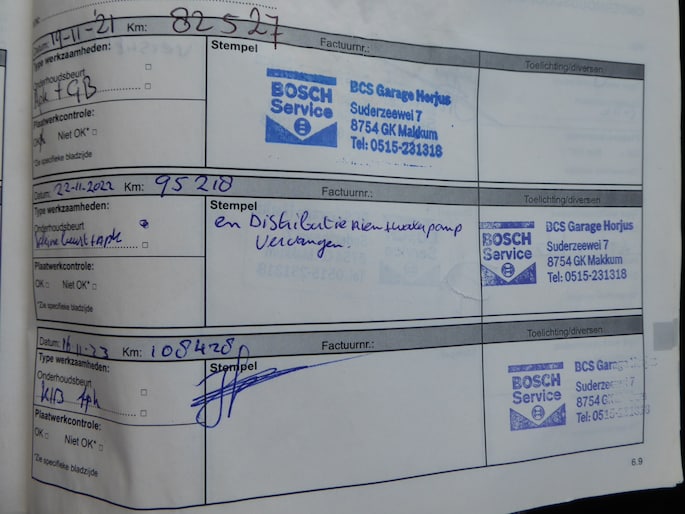 Datum: 14-11-'21 Km: 82527
Type werkzaamheden:
Stempel
Factuurnr.:
Toelichting/diversen
Onderhoudsbeurt
Apk + GB
Plaatwerkcontrole:
Niet OK*
*Zie specifieke bladzijde
BOSCH
Service
BCS Garage Horjus
Suderzeewei 7
8754 GK Makkum
Tel: 0515-231318
Datum: 22-11-2022 Km: 95218
Type werkzaamheden:
Stempel
Factuurnr.:
Toelichting/diversen
Onderhoudsbeurt
kleine beurt + Apk
Plaatwerkcontrole:
OK Niet OK*
*Zie specifieke bladzijde
en Distributieriem + waterpomp
Vervangen.
BOSCH
Service
BCS Garage Horjus
Suderzeewei 7
8754 GK Makkum
Tel: 0515-231318
Datum: 11-23 Km: 108428
Type werkzaamheden:
Stempel
Factuurnr.:
Toelichting/diversen
Onderhoudsbeurt
KlB Apk
Plaatwerkcontrole:
OK Niet OK*
*Zie specifieke bladzijde
BOSCH
Service
BCS Gar
Suderzee 7
8754 G
Tel: 0515-231318
6.9